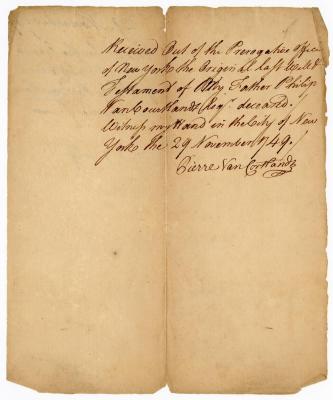 Received Out of the Prerogative Office
of New York the Original last Will &
Testament of My Father Philip
Van Courtlandt Esqr. deceasd.
Witness my Hand in the City of New
York the 29 November 1749.
Pierre Van Cortlandt